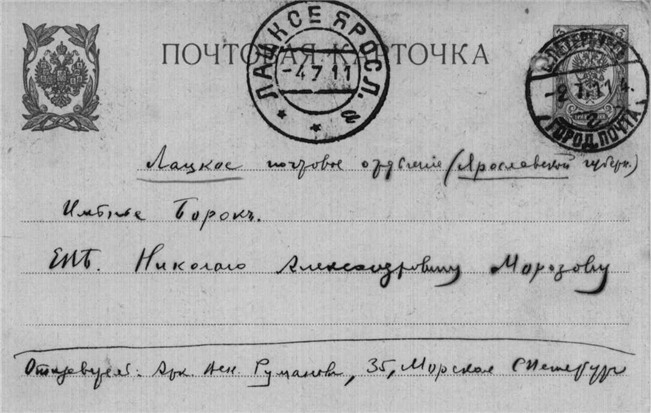 ПОЧТОВАЯ КАРТОЧКА
ЛАЦКОЕ ЯРОСЛ.
-4.7.11
а
С.ПЕТЕРБУРГЪ
-2.7.11
ГОРОД.ПОЧТА
Лацкое почтовое отдѣленіе (Ярославской губерн.)
Имѣніе Борокъ.
ЕВП. Николаю Александровичу Морозову
Арк. Вен. Руманов, 35, Морская С Петербург